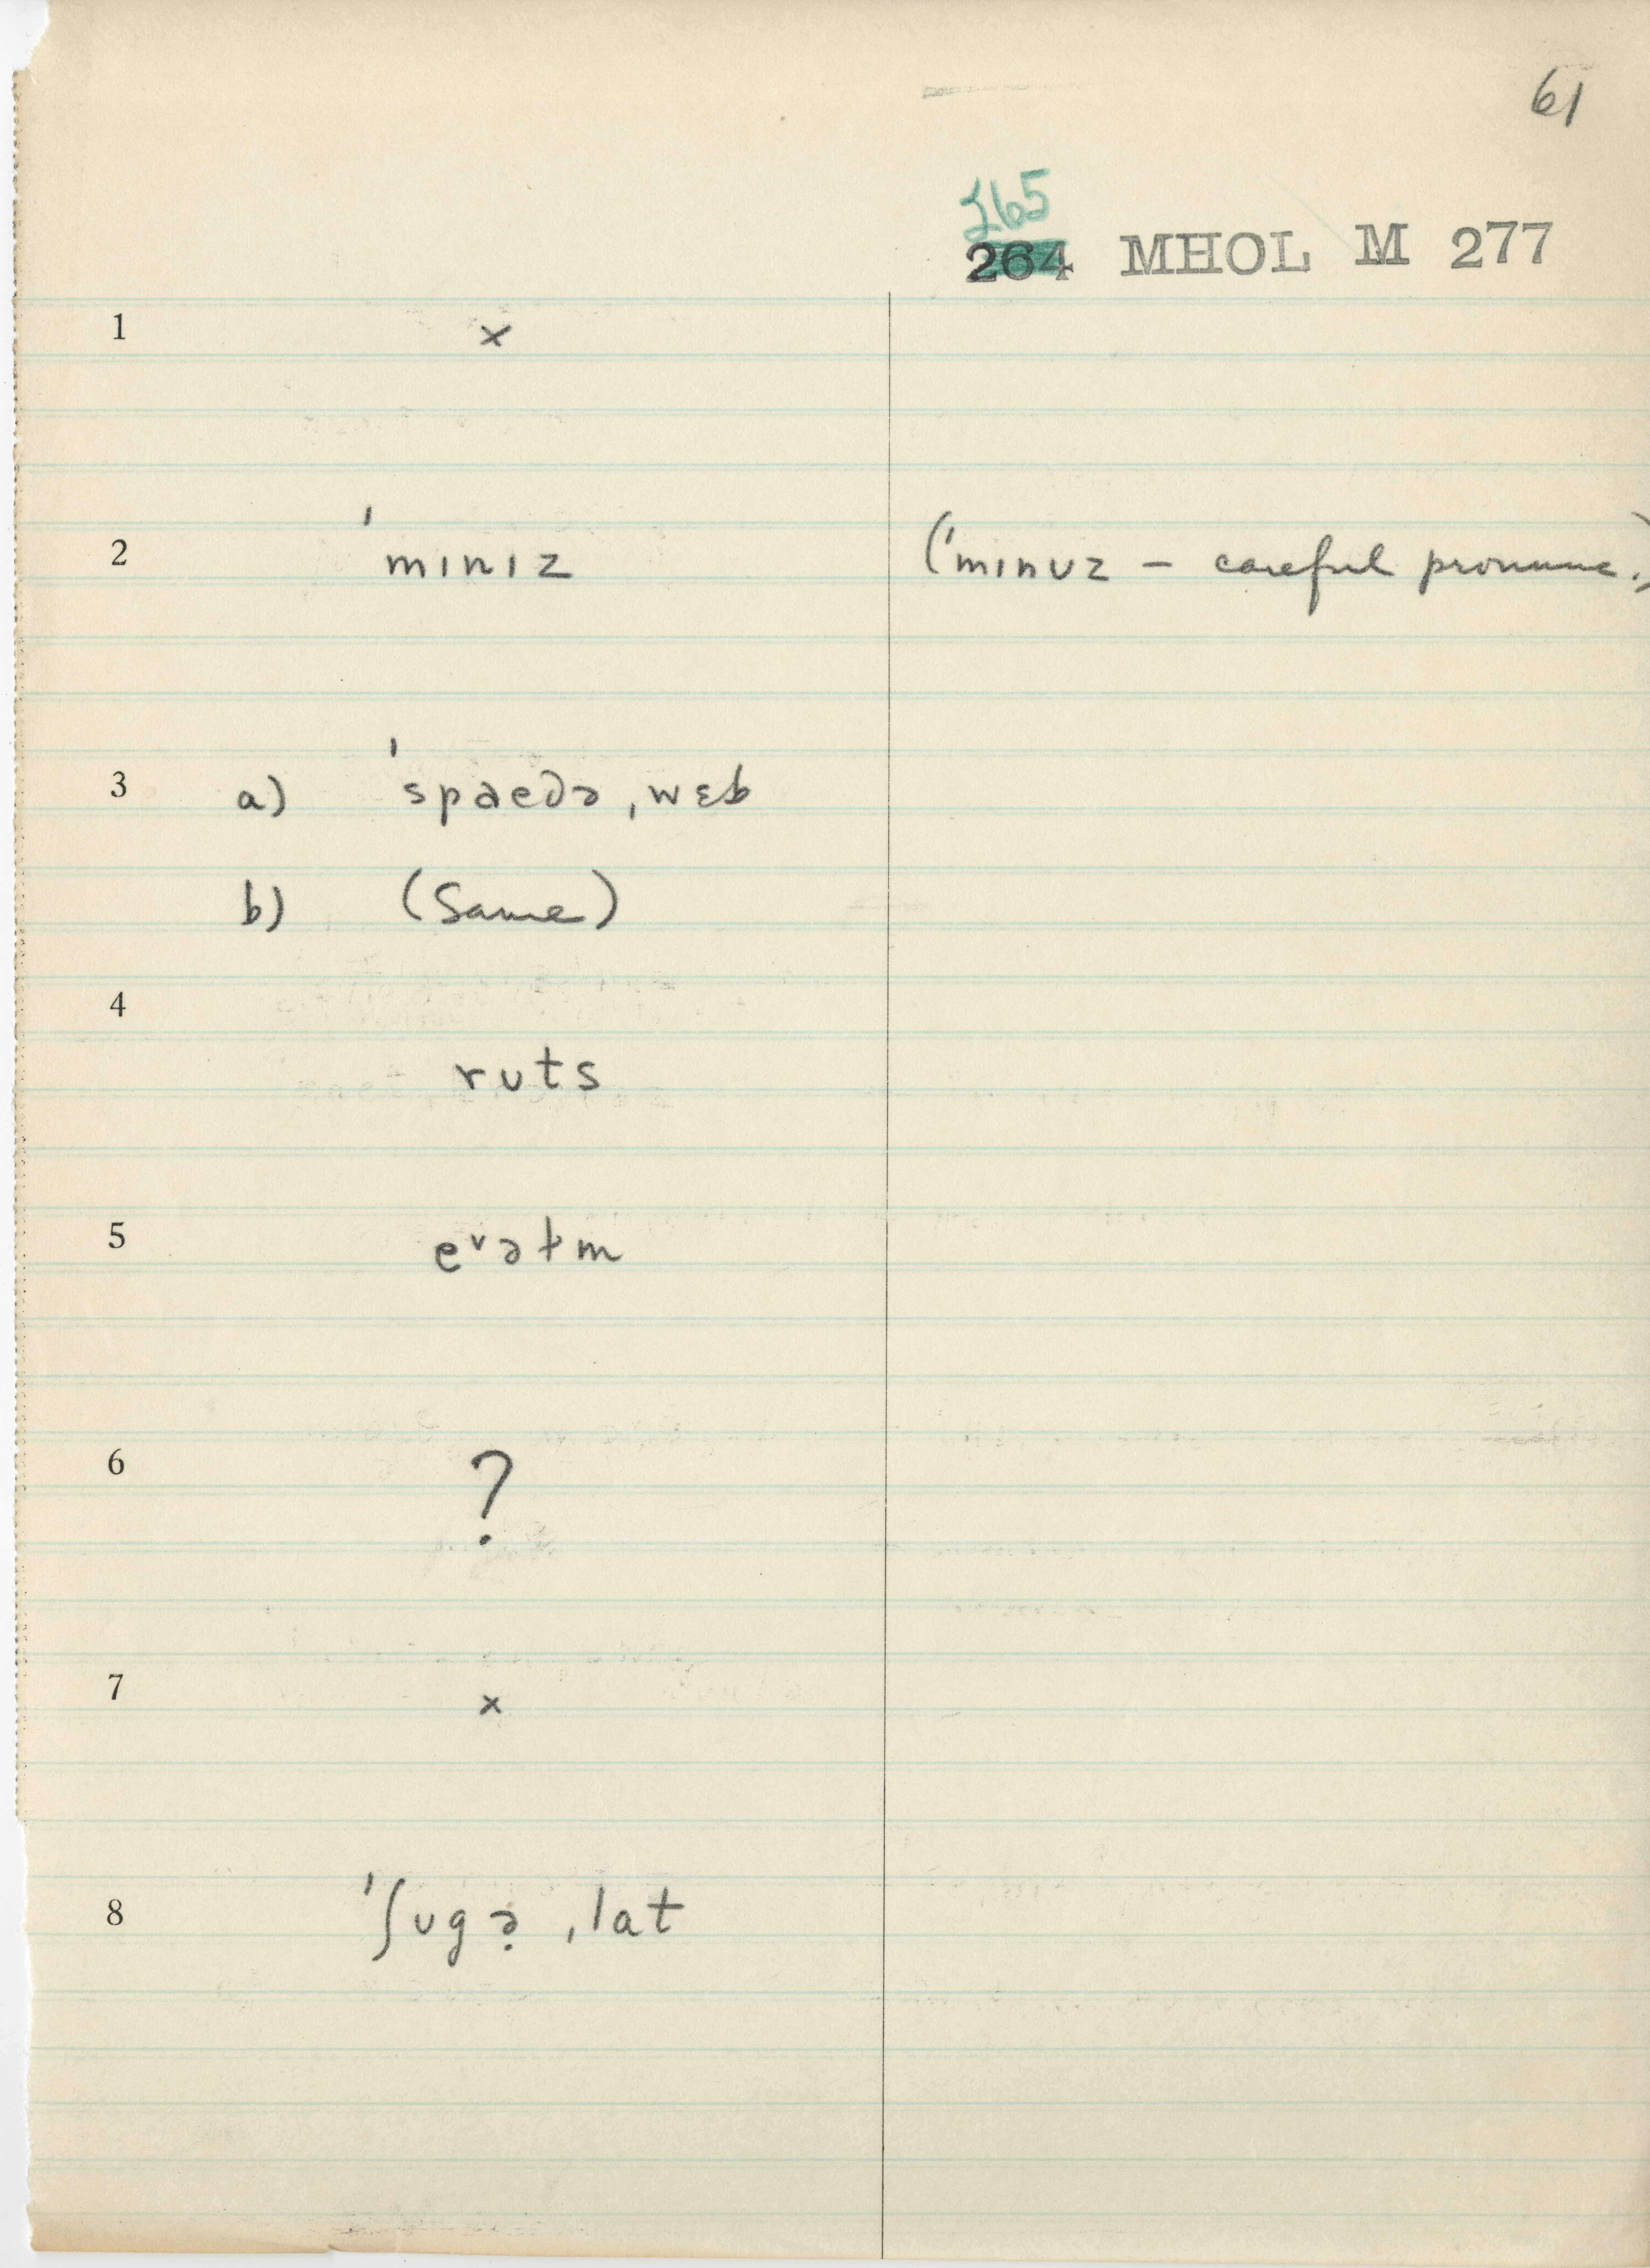 61
265
264 MHOL M 277
1 ×
2 ˈmɪnɪz (ˈmɪnʊz – careful pronunc.)
3 a) ˈspaedə ˌwɛb
b) (Same)
4
rʊts
5 eᵛəɫm
6 ?
7 ×
8 ˈʃʊgə̣ ˌlat